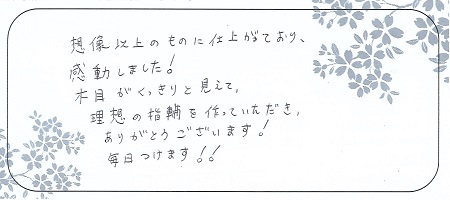 想像以上のものに仕上がっており、
感動しました!
木目がくっきりと見えて、
理想の指輪を作っていただき、
ありがとうございます!
毎日つけます!!